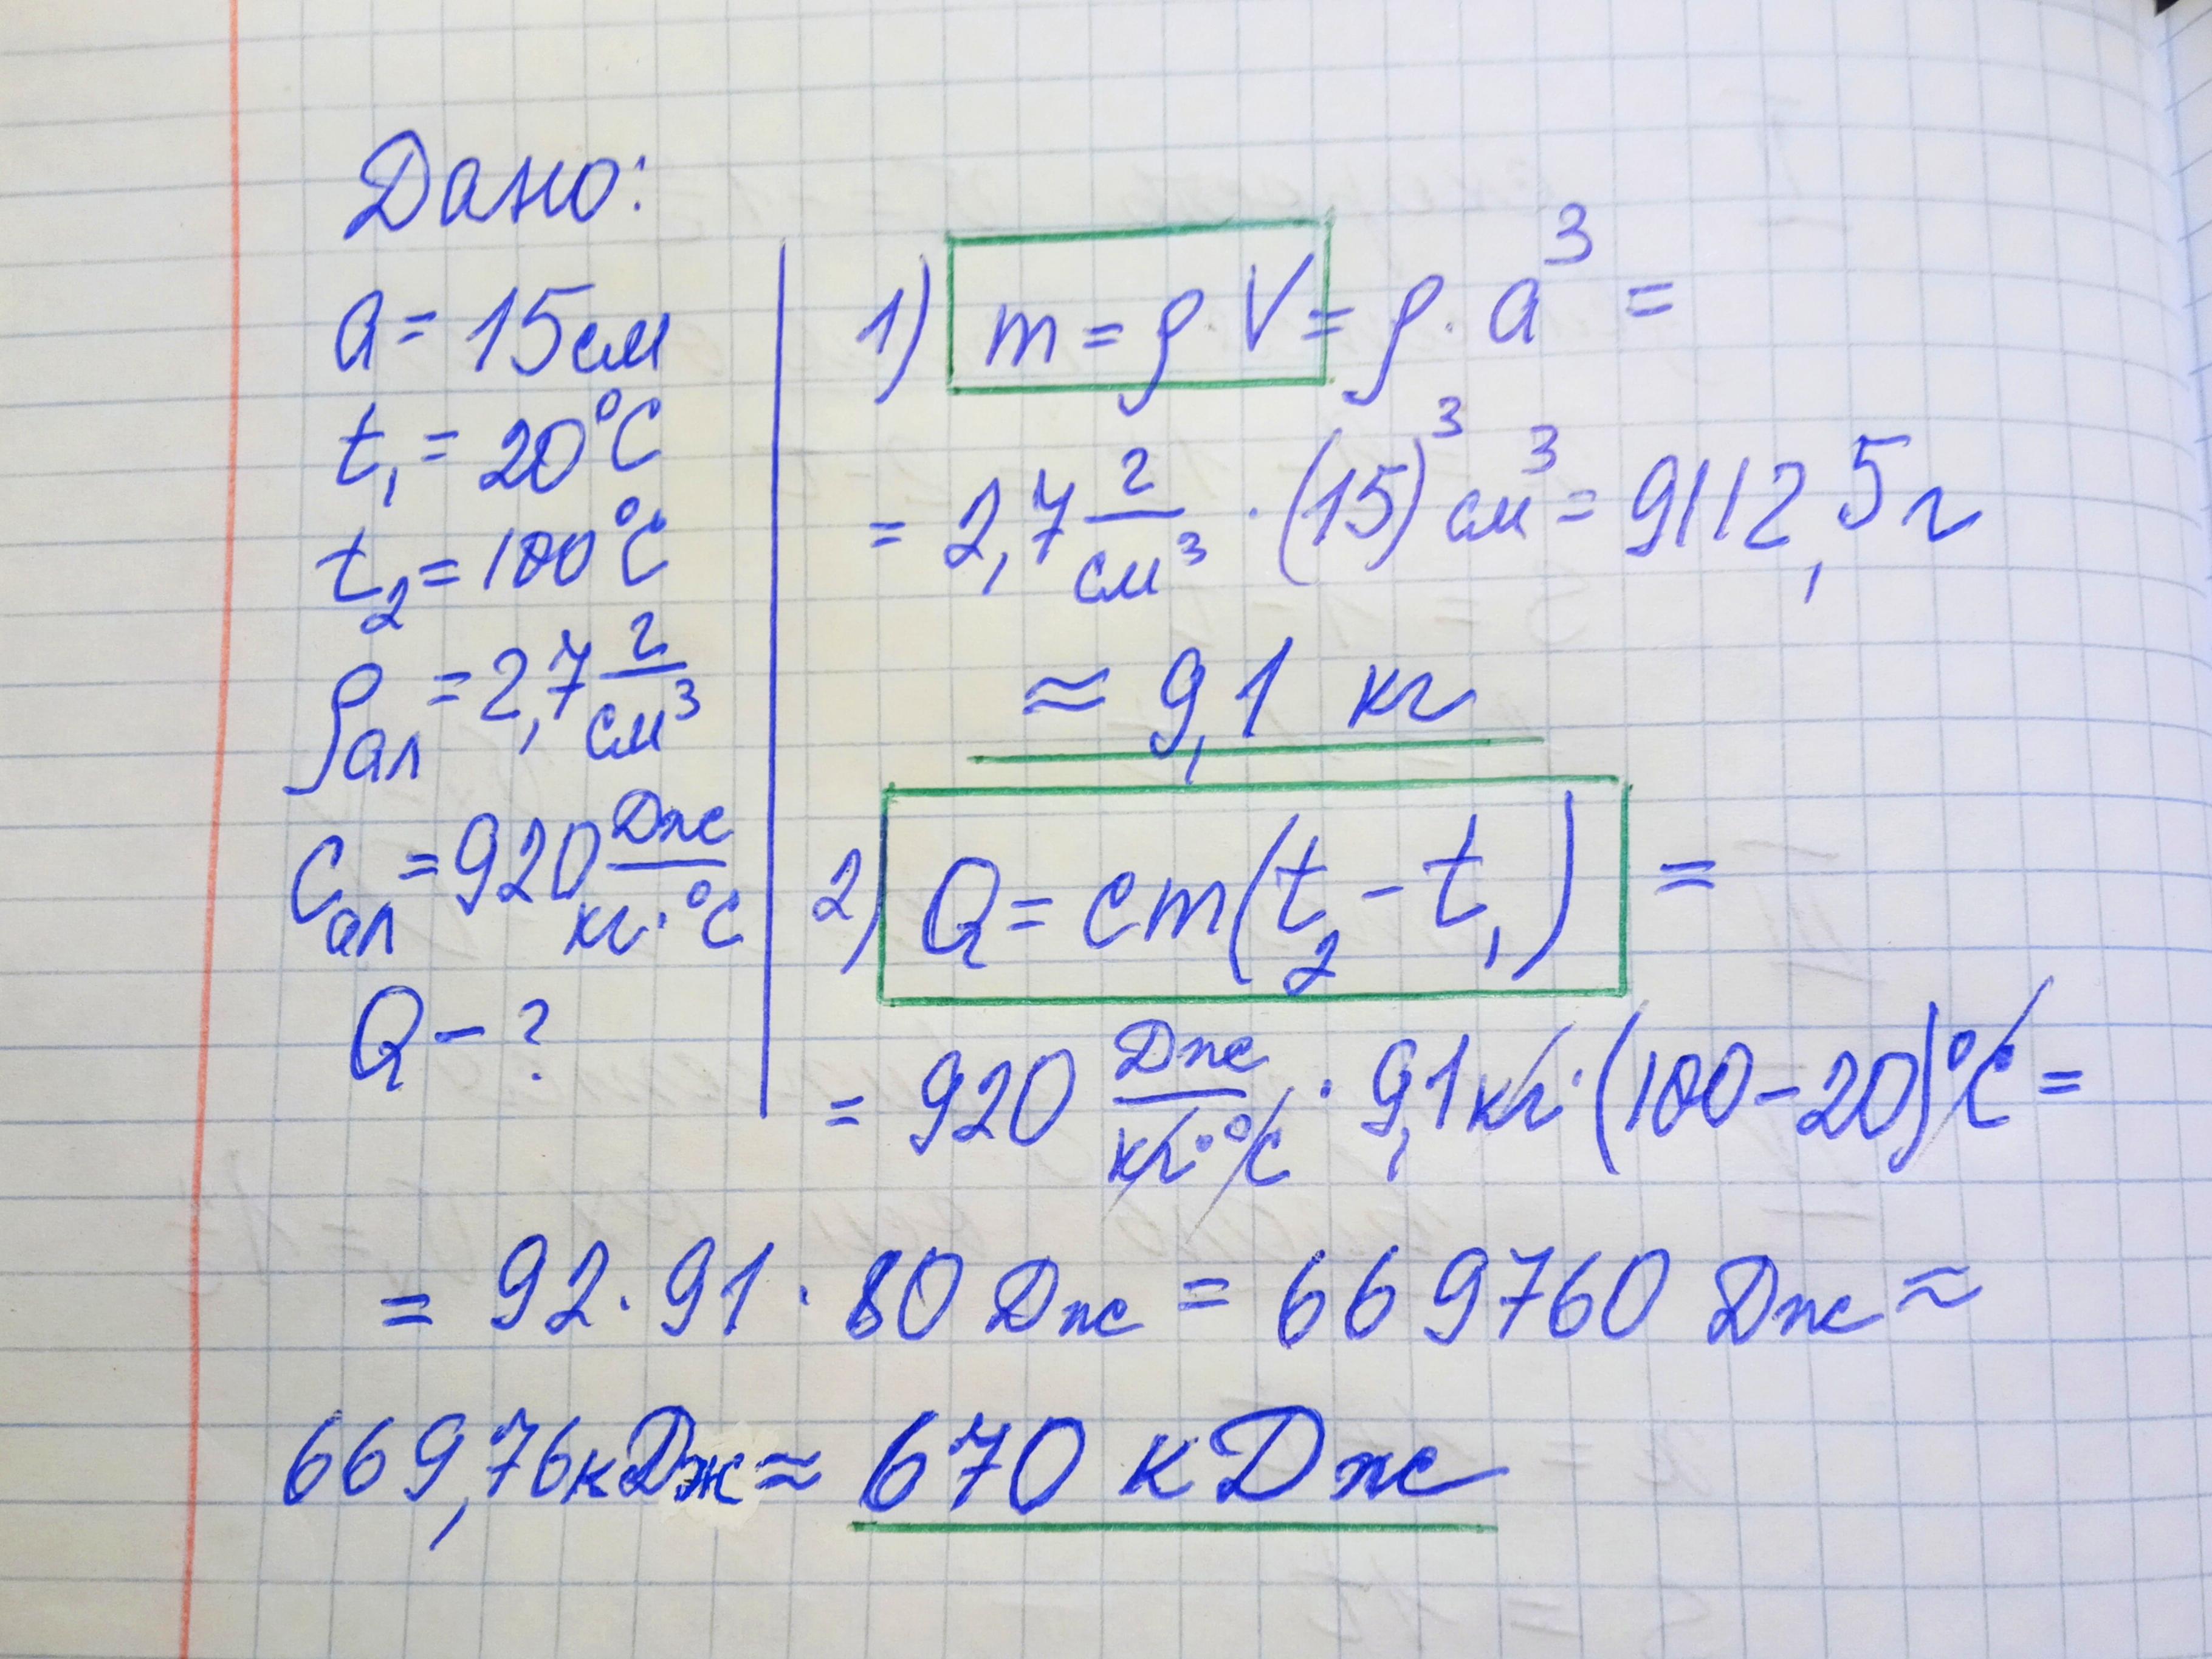 Дано:
a = 15 см
t₁ = 20°C
t₂ = 100°C
ρал = 2,7 г/см³
Cал = 920 Дж/кг·°C
Q – ?
1) m = ρ·V = ρ·a³ =
= 2,7 г/см³ · (15)³ см³ = 9112,5 г
≈ 9,1 кг
2) Q = cm(t₂ – t₁) =
= 920 Дж/кг·°C · 9,1 кг·(100–20)°C =
= 92·91·80 Дж = 669760 Дж ≈
669,76 кДж ≈ 670 кДж